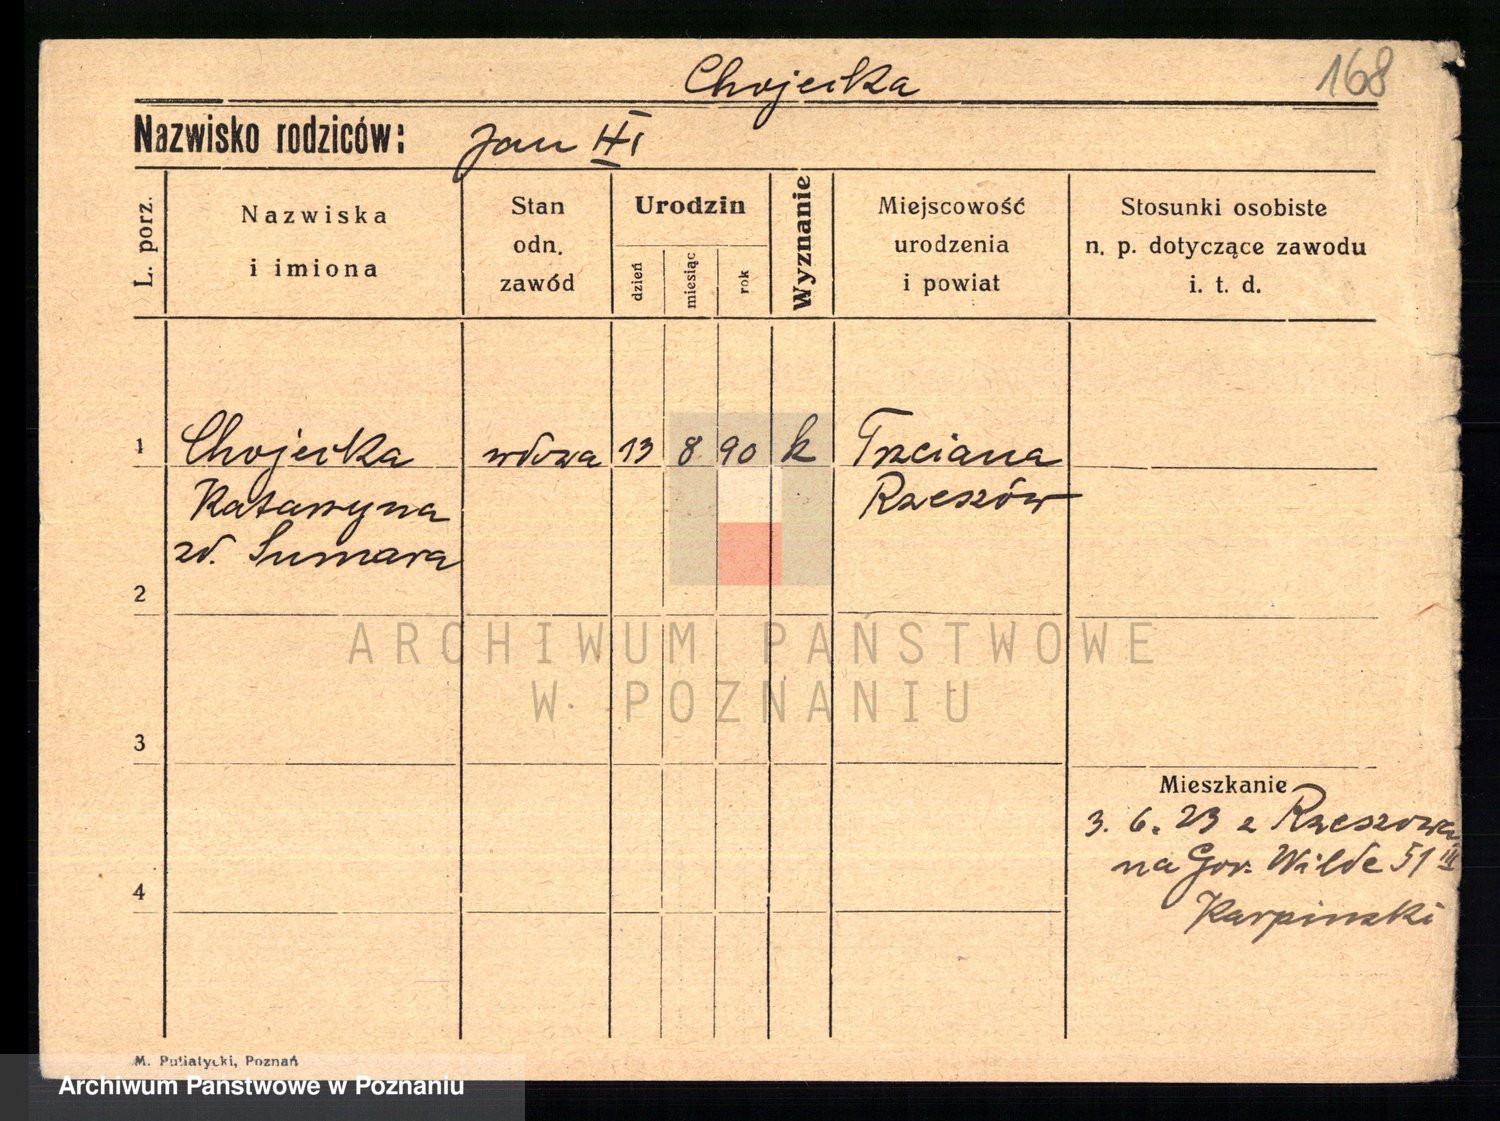 Chojecka
168
Nazwisko rodziców: Jan
L. porz.
Nazwiska
i imiona
Stan
odn.
zawód
Urodzin
dzień
miesiąc
rok
Wyznanie
Miejscowość
urodzenia
i powiat
Stosunki osobiste
n. p. dotyczące zawodu
i. t. d.
1 Chojecka wdowa 13 8 90 k Trzciana
Katarzyna Rzeszów
zd. Sumara
2
ARCHIWUM PAŃSTWOWE
W POZNANIU
3
Mieszkanie
3. 6. 23 z Rzeszowa
na Gór. Wilde 51 III
4
Karpinski
M. Putiatycki, Poznań
Archiwum Państwowe w Poznaniu